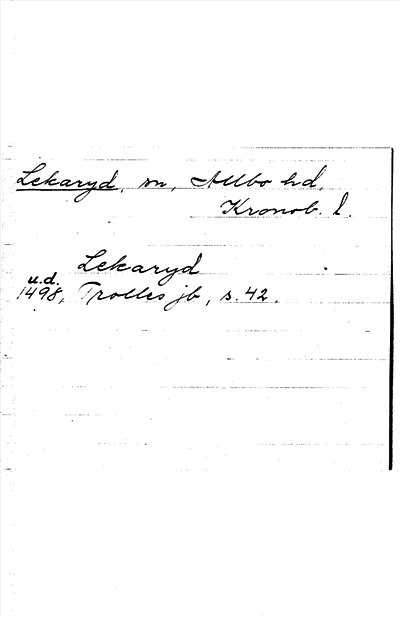 Lekaryd, sn, Allbo hd,
Kronob. l.
Lekaryd
u.d.
1498, Trolles jb, s. 42.